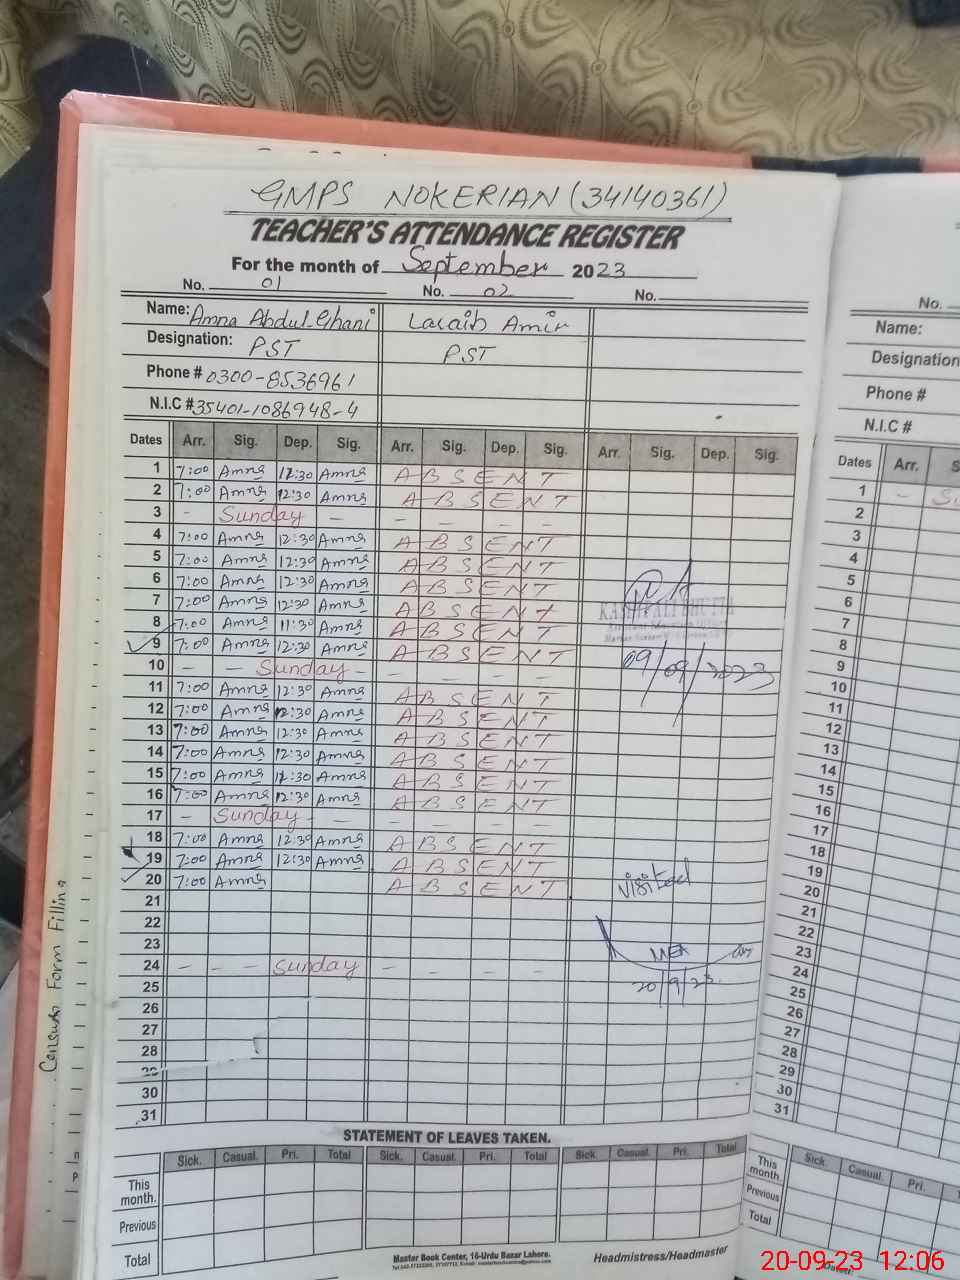 GMPS NOKERIAN (34140361)
TEACHER'S ATTENDANCE REGISTER
For the month of September 2023
No. 01 No. 02 No.
Name: Amna Abdul Ghani Laraib Amir
Designation: PST PST
Phone # 0300-8536961
N.I.C # 35401-1086948-4
Dates Arr. Sig. Dep. Sig. Arr. Sig. Dep. Sig. Arr. Sig. Dep. Sig.
1 7:00 Amna 12:30 Amna ABSENT
2 7:00 Amna 12:30 Amna ABSENT
3 - Sunday - - - - -
4 7:00 Amna 12:30 Amna ABSENT
5 7:00 Amna 12:30 Amna ABSENT
6 7:00 Amna 12:30 Amna ABSENT
7 7:00 Amna 12:30 Amna ABSENT
8 7:00 Amna 11:30 Amna ABSENT
9 7:00 Amna 12:30 Amna ABSENT
09/09/2023
10 - - Sunday - - - - -
11 7:00 Amna 12:30 Amna ABSENT
12 7:00 Amna 12:30 Amna ABSENT
13 7:00 Amna 12:30 Amna ABSENT
14 7:00 Amna 12:30 Amna ABSENT
15 7:00 Amna 12:30 Amna ABSENT
16 7:00 Amna 12:30 Amna ABSENT
17 - Sunday - - - - - -
18 7:00 Amna 12:30 Amna ABSENT
19 7:00 Amna 12:30 Amna ABSENT
20 7:00 Amna ABSENT
Visited
21
22
23
MEA
24 - - - Sunday - - - -
25
20/9/23
26
27
28
29
30
31
STATEMENT OF LEAVES TAKEN.
Sick. Casual. Pri. Total Sick. Casual. Pri. Total Sick. Casual. Pri. Total
This month.
Previous
Total
Master Book Center, 16-Urdu Bazar Lahore.
Headmistress/Headmaster
Form Filling
No.
Name:
Designation
Phone #
N.I.C #
Dates Arr. S
1 -
2
3
4
5
6
7
8
9
10
11
12
13
14
15
16
17
18
19
20
21
22
23
24
25
26
27
28
29
30
31
Sick. Casual. Pri.
This month.
Previous
Total
Dated:
20-09-23 12:06